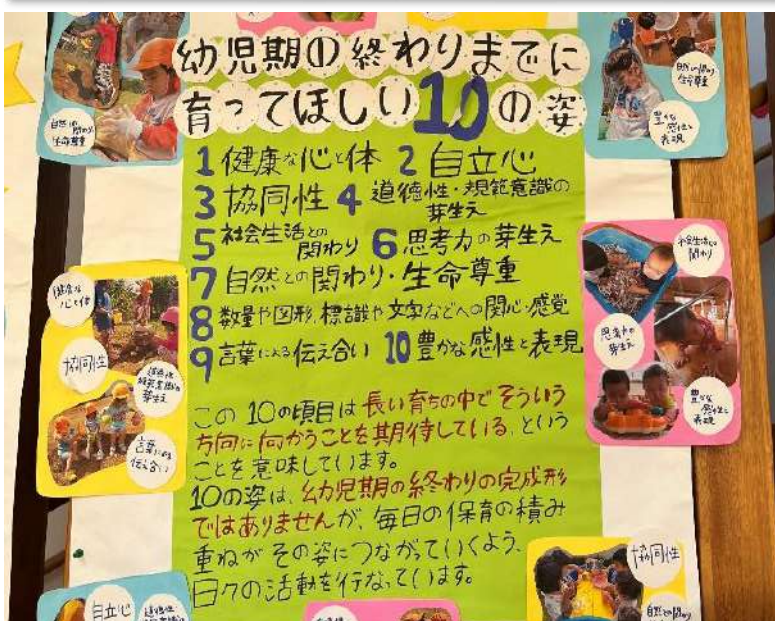 幼児期の終わりまでに
育ってほしい10の姿
1 健康な心と体 2 自立心
3 協同性 4 道徳性・規範意識の
芽生え
5 社会生活との
関わり 6 思考力の芽生え
7 自然との関わり・生命尊重
8 数量や図形、標識や文字などへの関心・感覚
9 言葉による伝え合い 10 豊かな感性と表現
この10の項目は長い育ちの中でそういう
方向に向かうことを期待している、という
ことを意味しています。
10の姿は、幼児期の終わりの完成形
ではありませんが、毎日の保育の積み
重ねがその姿につながっていくよう、
日々の活動を行なっています。
自然との関わり
生命尊重
自然との関わり
生命尊重
豊かな
感性と
表現
健康な
心と体
協同性
道徳性
規範意識の
芽生え
言葉による
伝え合い
社会生活との
関わり
思考力の
芽生え
豊かな
感性と
表現
自立心
道徳性
協同性
自然との関わり